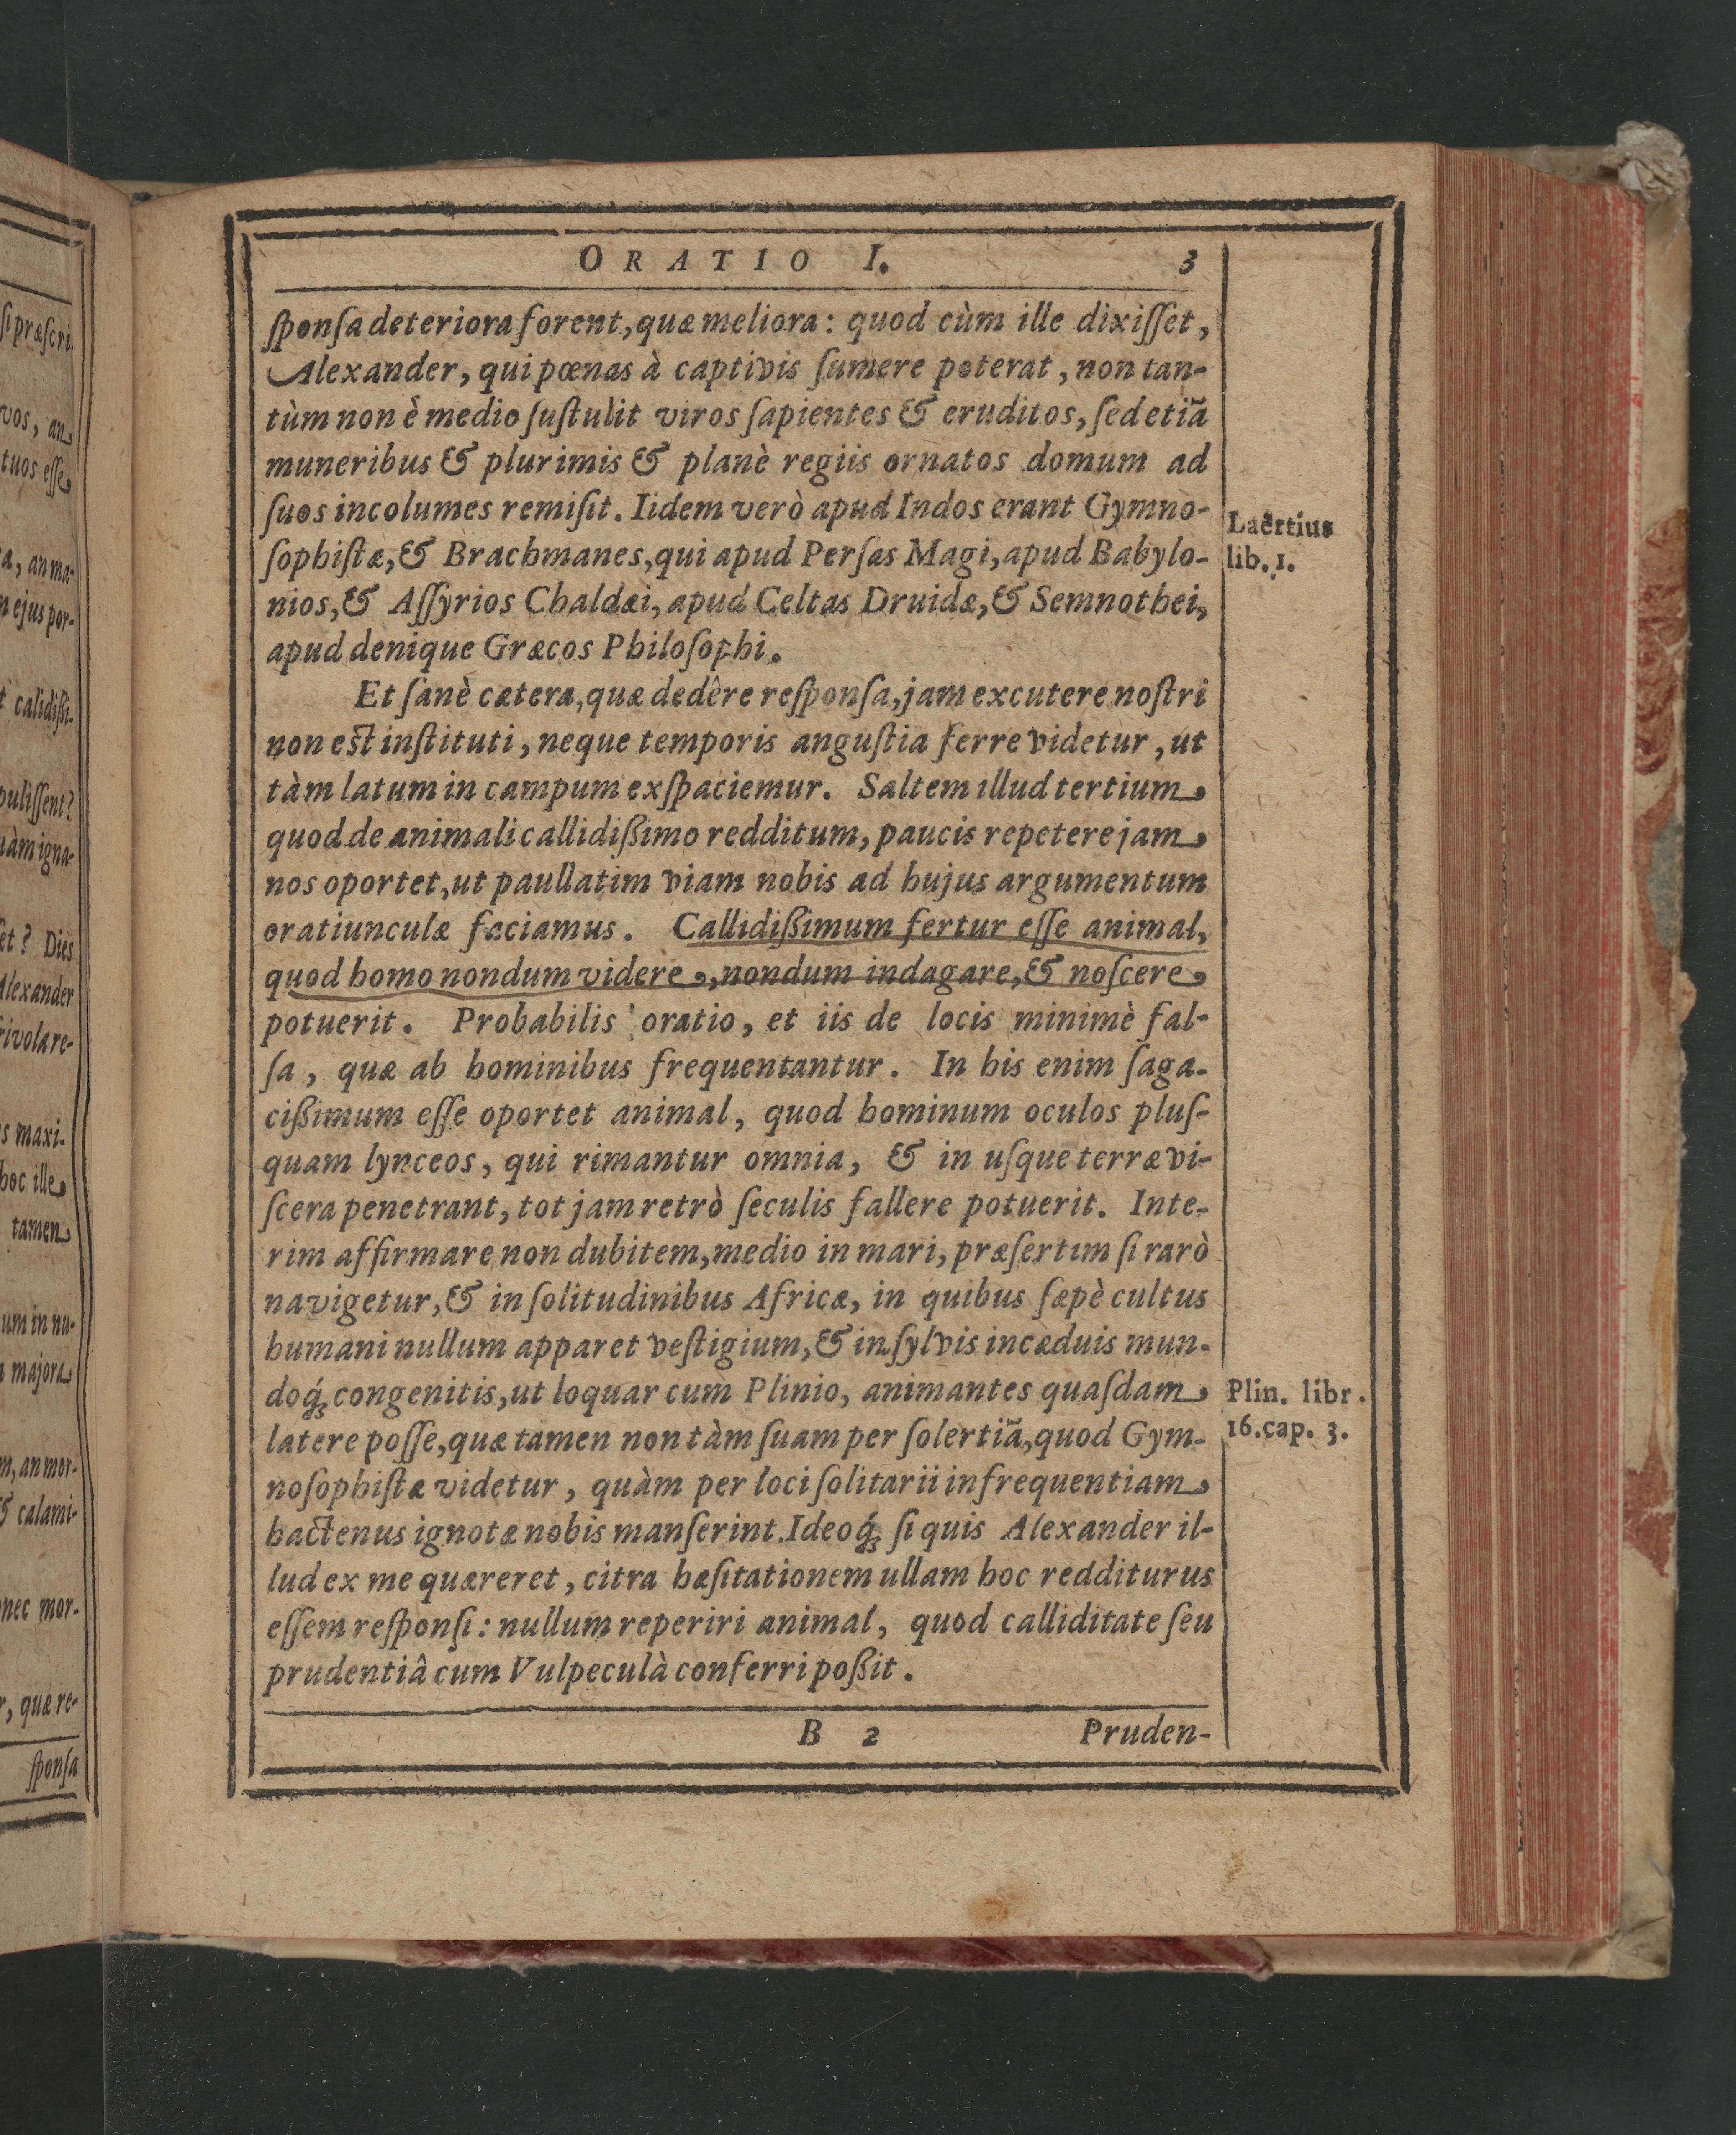 ORATIO I. 3
ſponſa deteriora forent, quæ meliora: quod cùm ille dixiſſet,
Alexander, qui pœnas à captivis ſumere poterat, non tan-
tùm non è medio ſuſtulit viros ſapientes & eruditos, ſed etiã
muneribus & plurimis & planè regiis ornatos domum ad
ſuos incolumes remiſit. Iidem verò apud Indos erant Gymno-
ſophiſtæ, & Brachmanes, qui apud Perſas Magi, apud Babylo-
nios, & Aſſyrios Chaldæi, apud Celtas Druidæ, & Semnothei,
apud denique Græcos Philoſophi.
Laërtius
lib. 1.
Et ſanè cætera, quæ dedêre reſponſa, jam excutere noſtri
non eſt inſtituti, neque temporis anguſtia ferre videtur, ut
tàm latum in campum exſpaciemur. Saltem illud tertium
quod de animali callidißimo redditum, paucis repetere jam
nos oportet, ut paullatim viam nobis ad hujus argumentum
oratiunculæ faciamus. Callidißimum fertur eſſe animal,
quod homo nondum videre, nondum indagare, & noſcere
potuerit. Probabilis oratio, et iis de locis minimè fal-
ſa, quæ ab hominibus frequentantur. In his enim ſaga-
cißimum eſſe oportet animal, quod hominum oculos pluſ-
quam lynceos, qui rimantur omnia, & in uſque terræ vi-
ſcera penetrant, tot jam retrò ſeculis fallere potuerit. Inte-
rim affirmare non dubitem, medio in mari, præſertim ſi rarò
navigetur, & in ſolitudinibus Africæ, in quibus ſæpè cultus
humani nullum apparet veſtigium, & in ſylvis incæduis mun-
doq́ꝫ congenitis, ut loquar cum Plinio, animantes quaſdam
latere poſſe, quæ tamen non tàm ſuam per ſolertiã, quod Gym-
noſophiſtæ videtur, quàm per loci ſolitarii infrequentiam
hactenus ignotæ nobis manſerint. Ideoq́ꝫ ſi quis Alexander il-
lud ex me quæreret, citra hæſitationem ullam hoc redditurus
eſſem reſponſi: nullum reperiri animal, quod calliditate ſeu
prudentiâ cum Vulpeculà conferri poßit.
Plin. libr.
16. cap. 3.
B 2 Pruden-
ſi præſcri
vos, an
tuos eſſe
a, an ma-
n ejus por-
t calidißi-
pulißent?
uàm igna-
ſet? Dies
Alexander
rivola re-
s maxi-
hoc ille
tamen
um in nu-
majora
m, an mor-
& calami-
nec mor-
r, quæ re-
ſponſa